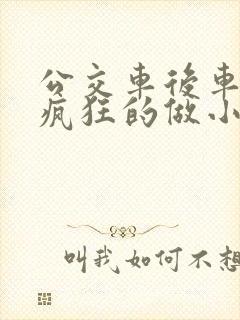 公交車後車
疯狂的做小
叫我如何不想